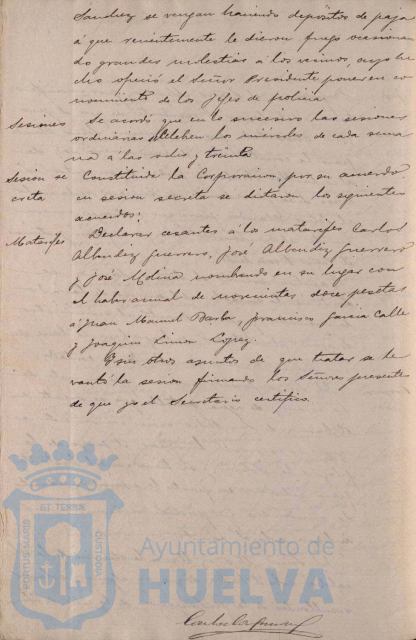 Sanchez se vengan haciendo depósitos de paja
á que recientemente le dieron fuego ocasionan
do grandes molestias á los vecinos, cuyo he
cho ofreció el Señor Presidente poner en co
nocimiento de los Jefes de policia
Sesiones
Se acordó que en lo sucesivo las sesiones
ordinarias se celebren los miércoles de cada sema
na á las y treinta
Sesion se
creta
Constituida la Corporacion, por su acuerdo
en sesion secreta se dictaron los siguientes
acuerdos:
Matarifes
Declarar cesantes á los matarifes Carlos
Albendiz Guerrero, José Albendiz Guerrero
y José Molina nombrando en su lugar con
el haber anual de novecientas doce pesetas
á Juan Manuel Barba, Francisco Garcia Calle
y Joaquin Limon Lopez.
Y sin otros asuntos de que tratar se le
vantó la sesión firmando los Señores presentes
de que yo el Secretario certifico.
PORTUS MARIS
ET TERRÆ
CUSTODIA
Ayuntamiento de
HUELVA